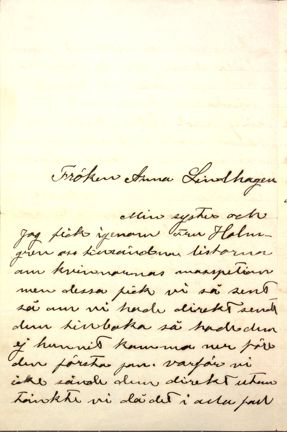 Fröken Anna Lindhagen
Min syster och
jag fick igenom fru Holm-
gren oss tillsända listorna
om kvinnornas masspetion
men dessa fick vi så sent
så om vi hade direkt sent
dem tillbaka så hade dem
ej hunnit komma ner före
den första jan. varför vi
icke sände dem direkt utan
tänkte vi då det i alla fall